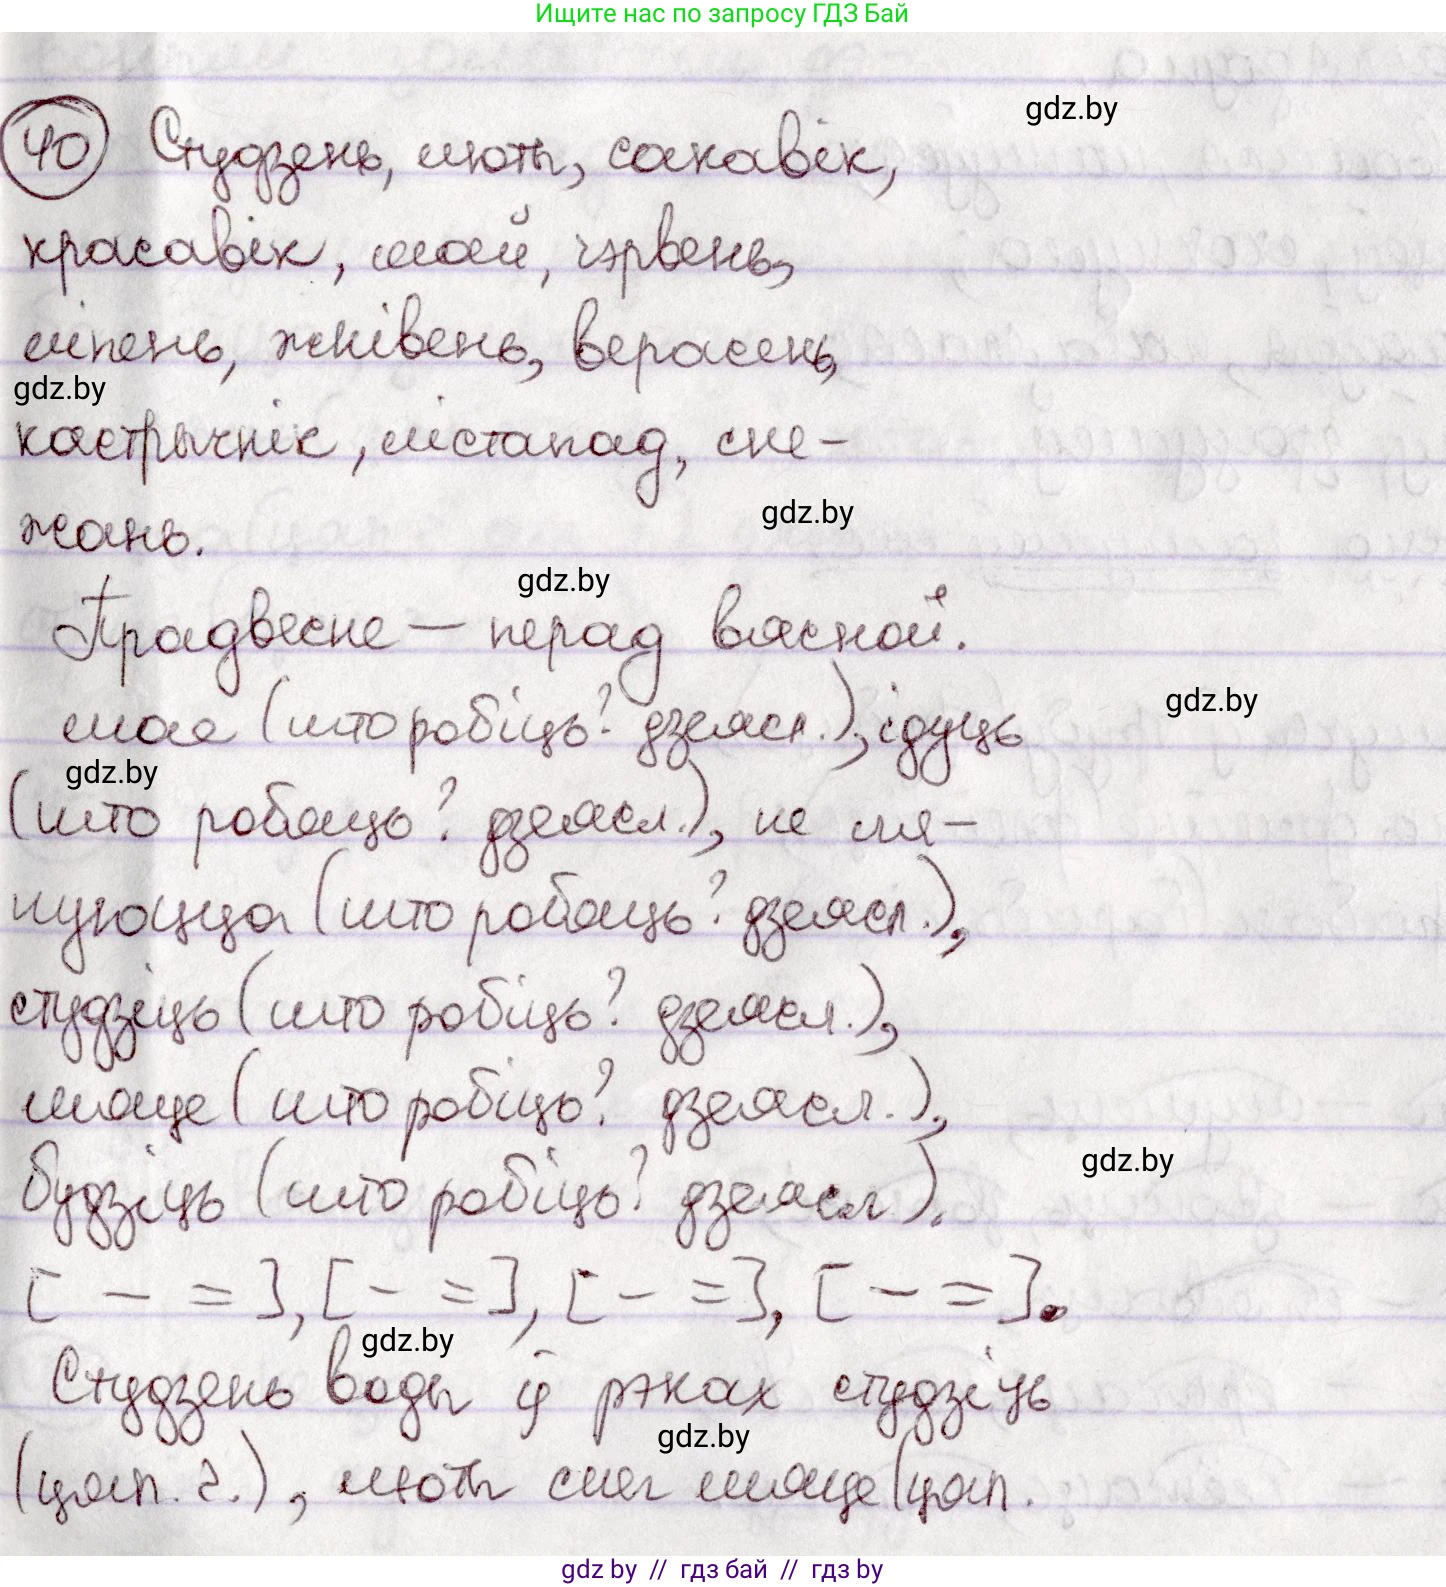 Ищите нас по запросу ГДЗ Бай
gdz.by
40 Студзень, люты, сакавік,
красавік, май, чэрвень,
ліпень, жнівень, верасень,
gdz.by
кастрычнік, лістапад, сне-
gdz.by
жань.
gdz.by
Прадвесне – перад вясной.
gdz.by
мае (што робіць? дзеясл.), ідуць
gdz.by
(што робяць? дзеясл.), не мя-
нуюцца (што робяць? дзеясл.),
студзіць (што робіць? дзеясл.),
мяце (што робіць? дзеясл.),
gdz.by
будзіць (што робіць? дзеясл.).
[ – = ], [ – = ], [ – = ], [ – = ].
gdz.by
Студзень воды ў рэках студзіць
gdz.by
(цяп. ч.), люты снег мяце (цяп.
gdz by // гдз бай // гдз by